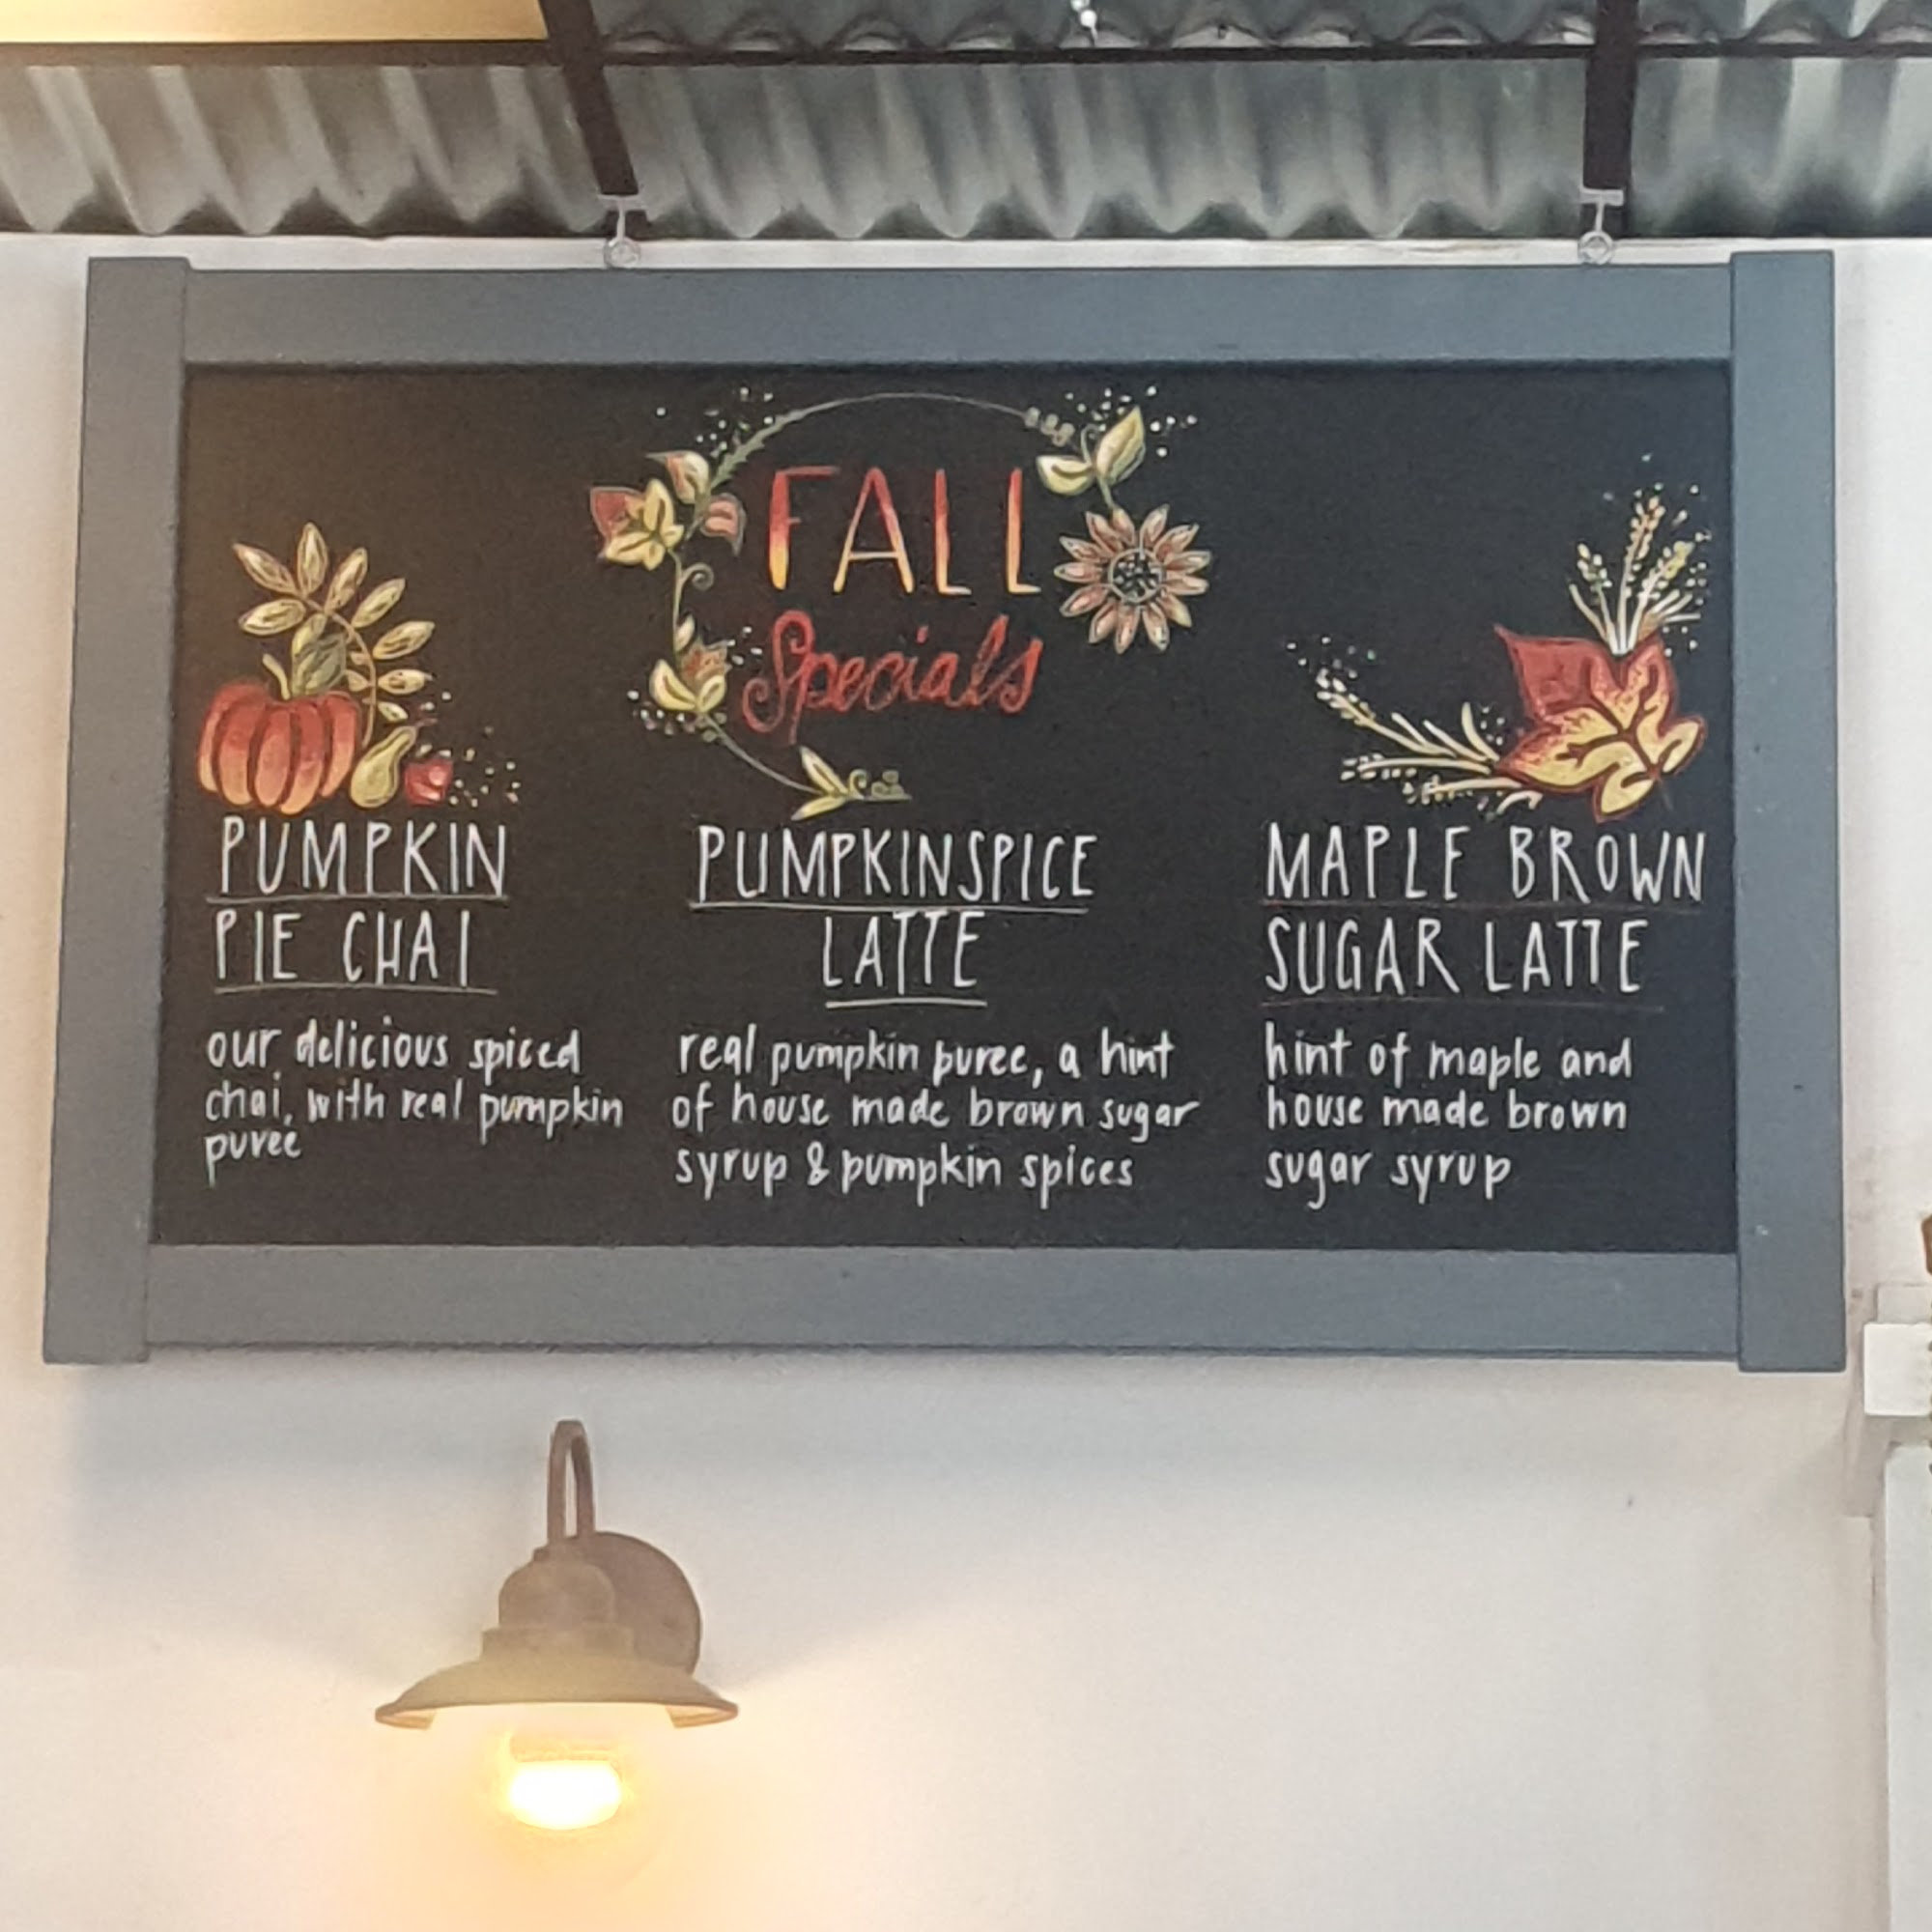 FALL
Specials
PUMPKIN
PIE CHAI
our delicious spiced
chai, with real pumpkin
puree
PUMPKINSPICE
LATTE
real pumpkin puree, a hint
of house made brown sugar
syrup & pumpkin spices
MAPLE BROWN
SUGAR LATTE
hint of maple and
house made brown
sugar syrup